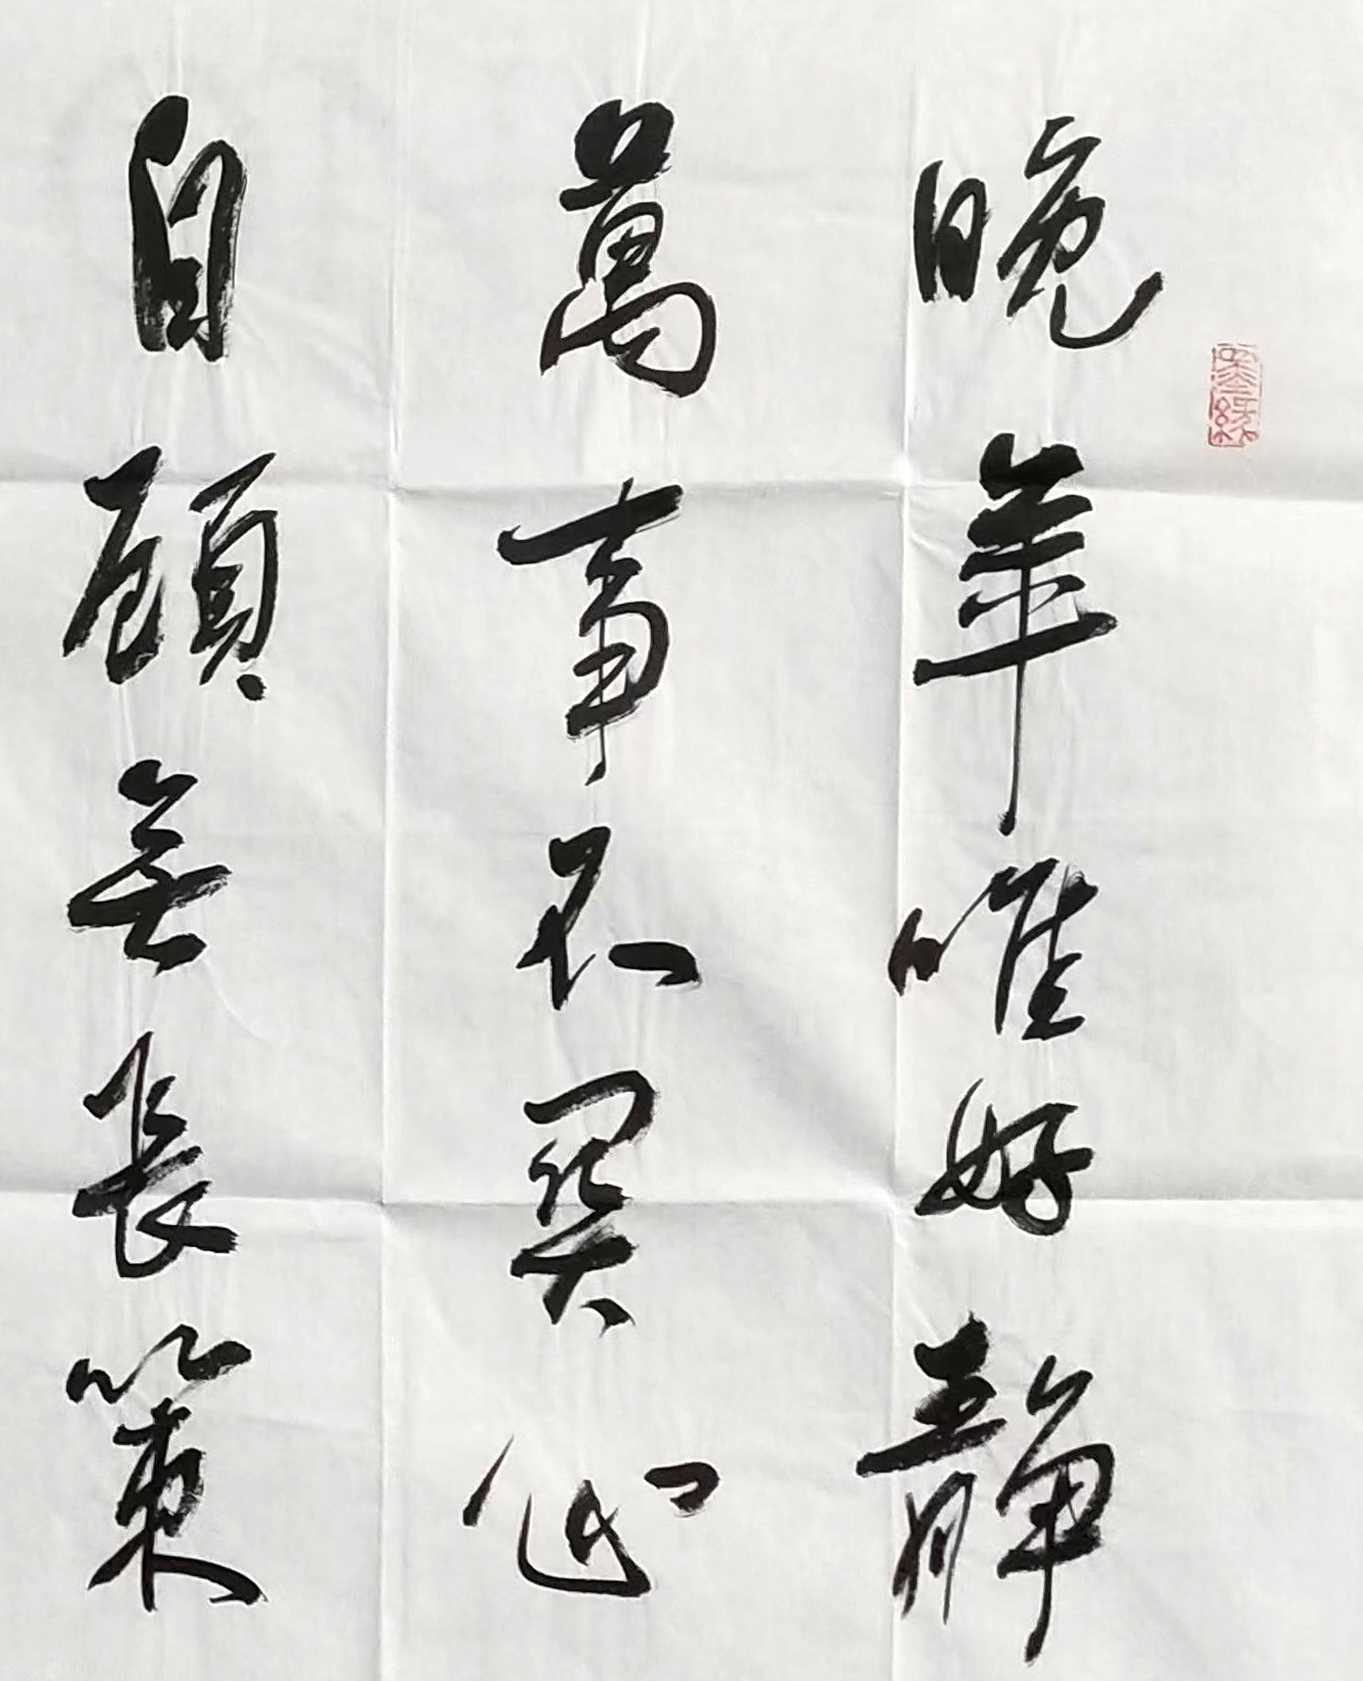 晚年唯好静
萬事不關心
自顧無長策
墨緣